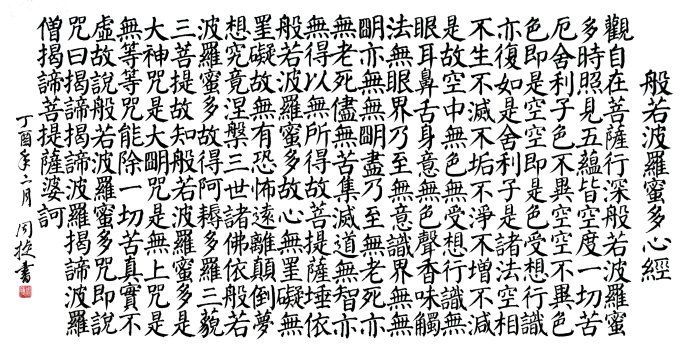 般若波羅蜜多心經
觀自在菩薩行深般若波羅蜜
多時照見五蘊皆空度一切苦
厄舍利子色不異空空不異色
色即是空空即是色受想行識
亦復如是舍利子是諸法空相
不生不滅不垢不淨不增不減
是故空中無色無受想行識無
眼耳鼻舌身意無色聲香味觸
法無眼界乃至無意識界無無
朙亦無無朙盡乃至無老死亦
無老死儘無苦集滅道無智亦
無得以無所得故菩提薩埵依
般若波羅蜜多故心無罣礙無
罣礙故無有恐怖遠離顛倒夢
想究竟涅槃三世諸佛依般若
波羅蜜多故得阿耨多羅三藐
三菩提故知般若波羅蜜多是
大神咒是大朙咒是無上咒是
無等等咒能除一切苦真實不
虛故說般若波羅蜜多咒即說
咒曰揭諦揭諦波羅揭諦波羅
僧揭諦菩提薩婆訶
丁酉年二月周捷書